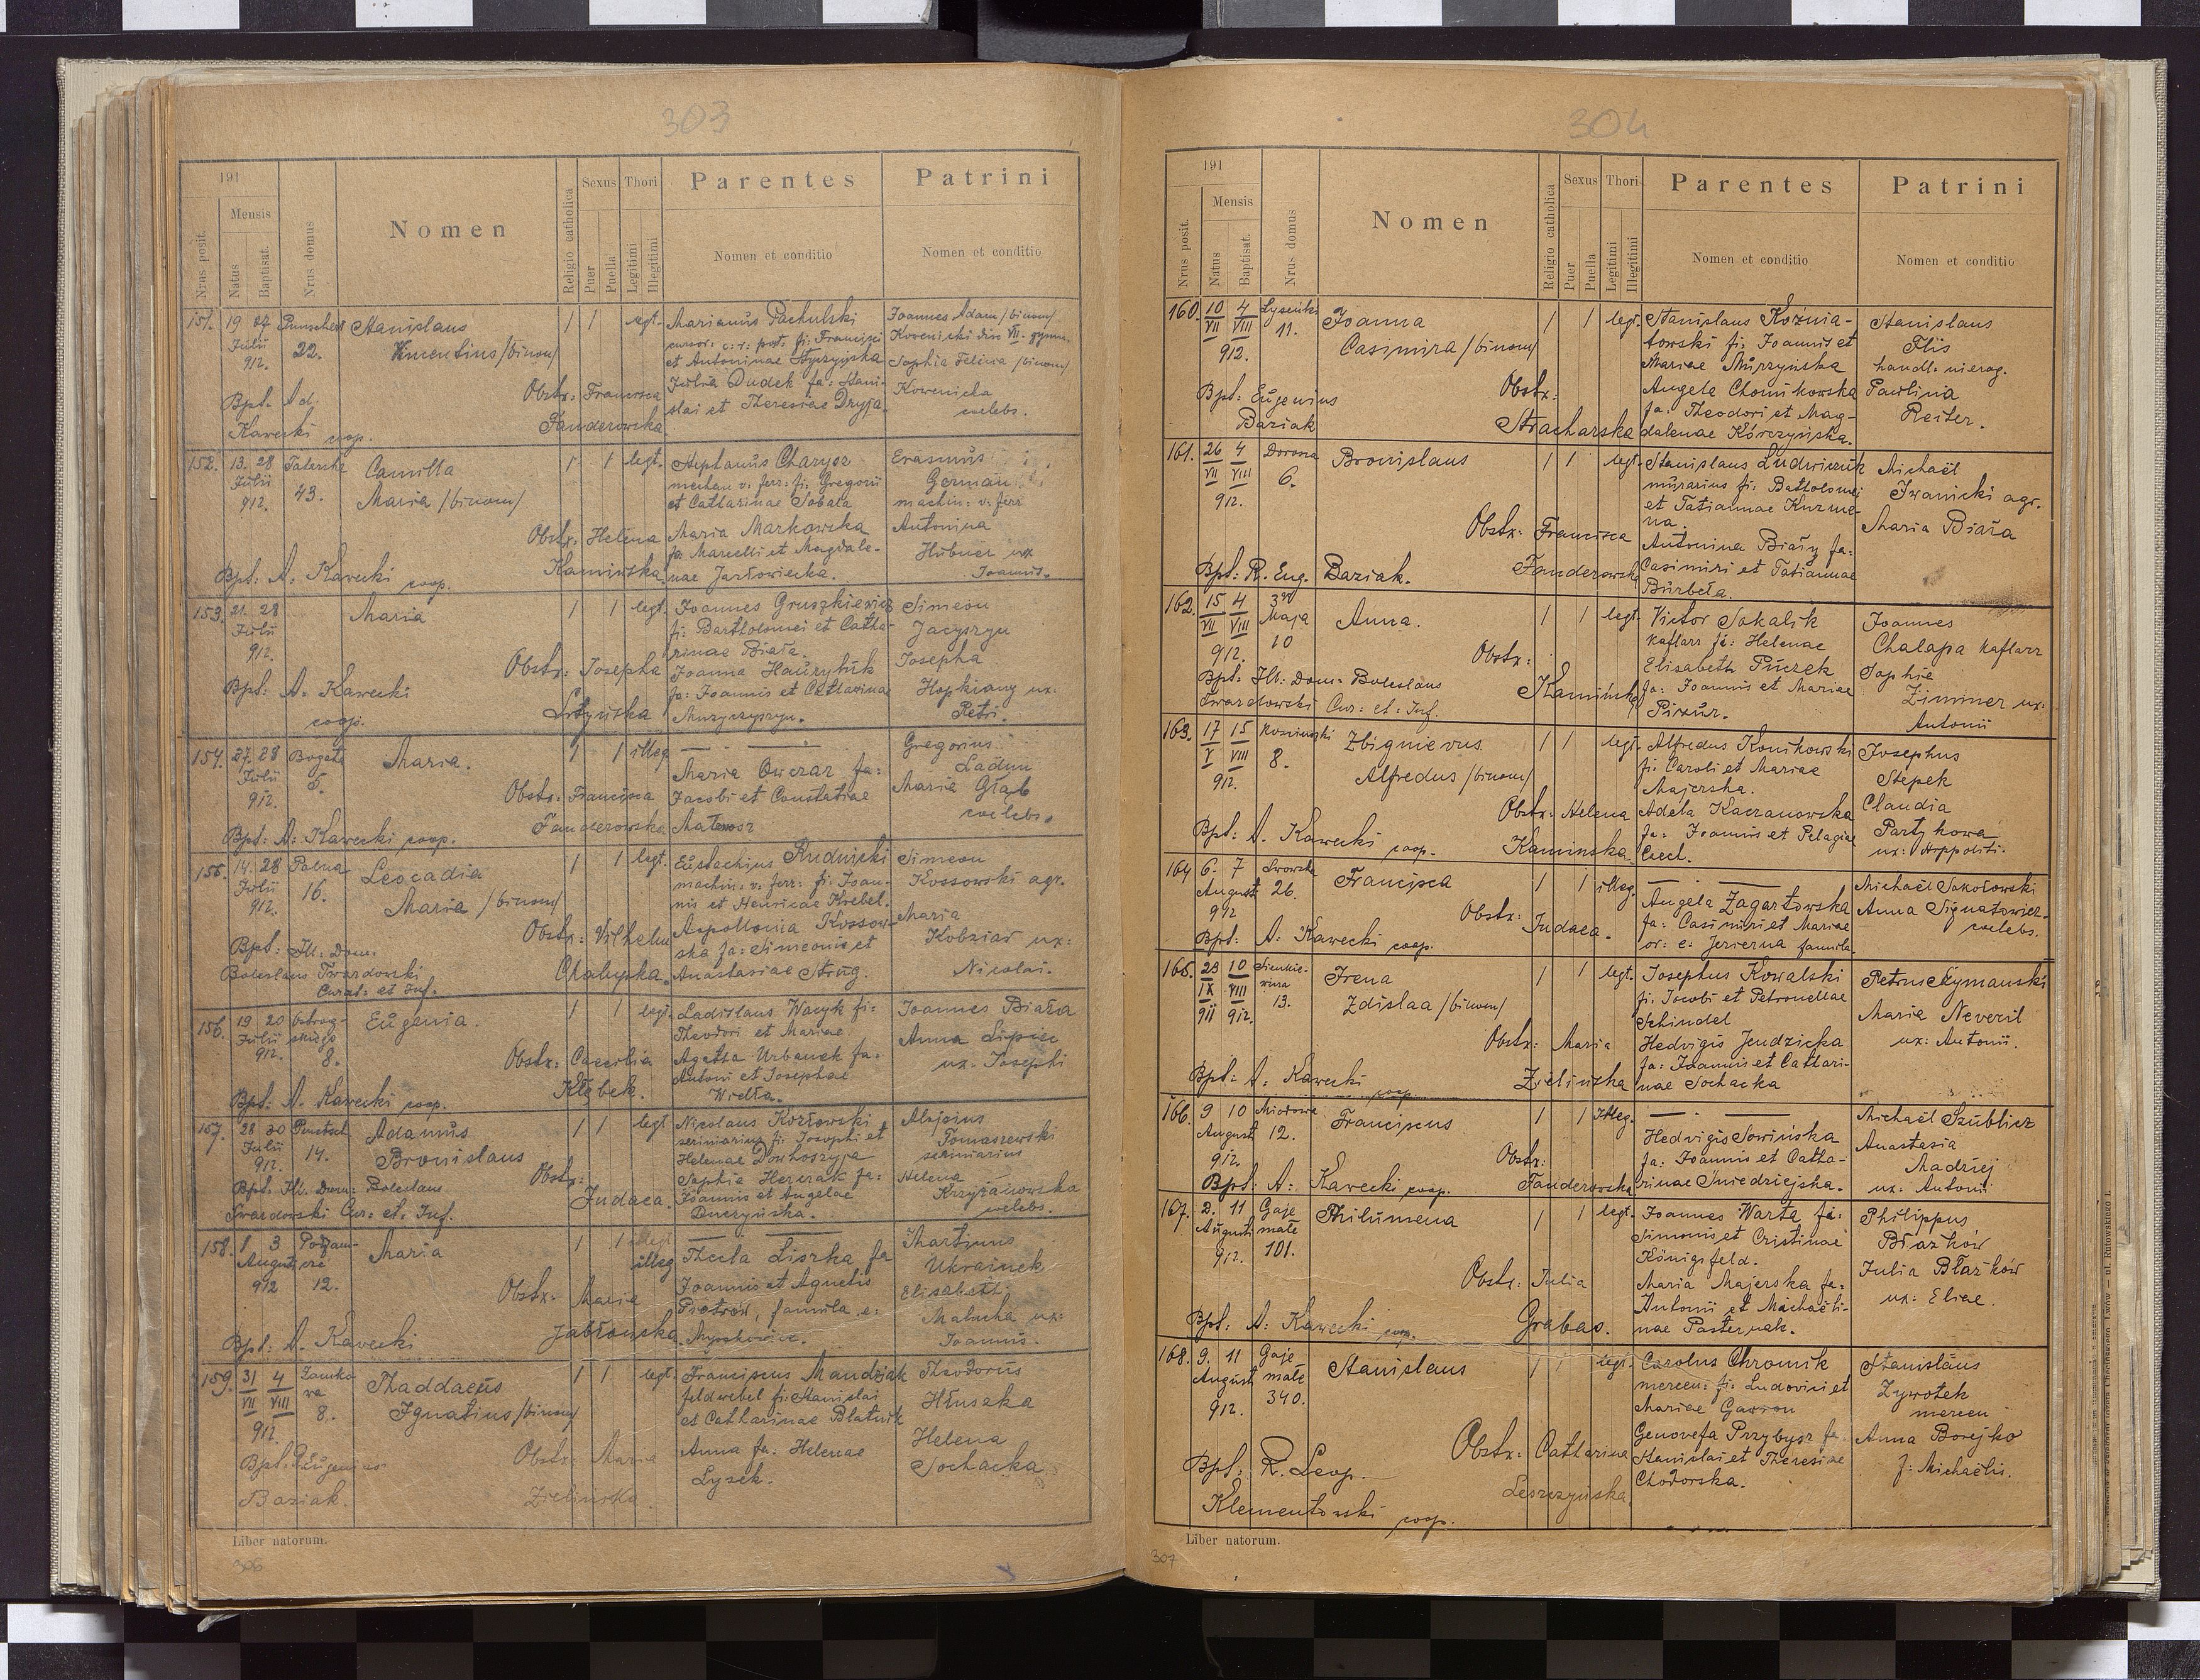 303
191
Nrus posit.
Mensis
Natus
Baptisat.
Nrus domus
Nomen
Religio catholica
Sexus
Puer
Puella
Thori
Legitimi
Illegitimi
Parentes
Nomen et conditio
Patrini
Nomen et conditio
151.
19 27
Julii
912.
22.
Stanislaus
Vincentius /binom/
1 1 legt.
Bpt. Ad.
Kawecki coop.
Obstx: Francisca
Fanderowska
Marianus Pachulski
et Antoninae
Julia Dudek fa: Stani-
slai et Theresiae Dryja.
Joannes Adam /binom/
Sophia Felicia /binom/
Kovenicka
coelebs.
152.
13. 28
Julii
912.
Tatarska
43.
Camilla
Maria /binom/
1 1 legt.
Obstx. Helena
Kamińska
Bpt: A. Kawecki coop.
Stephanus Charysz
mechan v. ferr: fi: Gregorii
et Catharinae Sobała
Maria Markowska
fa: Marcelli et Magdale-
nae Jarłowiecka.
Erasmus
German
machin: v: ferr
Antonina
Hübner ux
Joannis.
153.
21. 28
Julii
912.
Maria
1 1 legt.
Obstx: Josepha
Bpt: A. Kawecki
coop.
Joannes Gruszkiewicz
fi: Bartholomei et Catha-
rinae Biała.
Joanna
fa: Joannis et Catharinae
Simeon
Jacyszyn
Josepha
ux:
Petri.
154.
27. 28
Julii
912.
Bogata
5.
Maria.
1 1 illeg
Obstx: Francisca
Fanderowska
Bpt: A: Kawecki coop.
Maria Owczar fa:
Jacobi et Constatiae
Gregorius
Ladyn
Maria Głąb
coelebs.
155.
14. 28
Julii
912.
Polna
16.
Leocadia
Maria /binom/
1 1 legt.
Obstx: Vilhelm
Chalupka.
Bpt: Ill. Dom.
Boleslaus Twardowski
Curat: et Inf.
Eustachius Rudnicki
machin: v: ferr: fi: Joan-
nis et Henricae Krebel.
Appollonia Kossow-
ska fa: Simeonis et
Anastasiae Strug.
Simeon
Kossowski agr.
Maria
Kobziar ux:
Nicolai.
156.
19 20
Julii
912.
Ostrog-
skiego
8.
Eugenia.
1 1 legt.
Obstx: Caecilia
Kłębek.
Bpt: A. Kawecki coop.
Ladislaus Wacyk fi:
Theodori et Mariae
Agatha Urbanek fa:
Antoni et Josephae
Joannes Biała
Anna Lipiec
ux: Josephi
157.
28 30
Julii
912.
14.
Adamus
Bronislaus
1 1 legt
Obstx:
Judaea.
Bpt. Ill. Dom: Boleslaus
Twardowski Cur: et. Inf.
Nicolaus Kozłowski
scriniarius fi: Josephi et
Helenae
Sophia fa:
Joannis et Angelae
Alojsius
Tomaszewski
scriniarius
Helena
Krzyżanowska
coelebs.
158.
1 3
August
912
12.
Maria
1 1
illeg
Obstx: Maria
Jabłońska
Bpt: A. Kawecki
Thecla Liszka fa
Joannis et Agnetis
Piotrów, famila e:
Martinus
Ukrainek
Elisabeth
Malucha ux:
Joannis.
159.
31 4
VII VIII
912.
Zamko
wa
8.
Thaddaeus
Ignatius /binom/
1 1 legt.
Obstx: Maria
Zielińska.
Bpt. Eugenius
Baziak.
Franciscus Mandziak
feldwebel fi: Stanislai
et Catharinae Blatnik
Anna fa: Helenae
Lysek.
Theodorus
Hruszka
Helena
Sochacka
Liber natorum.
306
304
191
Nrus posit.
Mensis
Natus
Baptisat.
Nrus domus
Nomen
Religio catholica
Sexus
Puer
Puella
Thori
Legitimi
Illegitimi
Parentes
Nomen et conditio
Patrini
Nomen et conditio
160.
10 4
VII VIII
912.
11.
Joanna
Casimira /binom/
1 1 legt.
Obstx:
Stracharska
Bpt: Eugenius
Baziak
Stanislaus Koznia-
towski fi: Joannis et
Mariae Murzyńska
Angela Chomikowska
fa: Theodori et Mag-
dalenae Kórczyńska.
Stanislaus
Flis
handl: nierog.
Paulina
Reiter.
161.
26 4
VII VIII
912.
6.
Bronislaus
1 1 legt.
Obstx: Francisca
Fanderowska
Bpt: R. Eug. Baziak.
Stanislaus Ludwiczuk
murarius fi: Batholomei
et Tatiannae Kuzme-
na.
Antonina Biały fa:
Casimiri et Tatiannae
Burbeła.
Michaël
Iwanicki agr.
Maria Biała
162.
15 4
VII VIII
912.
3go
Maja
10
Anna.
1 1 legt.
Obstx:
Kamińska
Bpt: Ill: Dom: Boleslaus
Twardowski Cur: et: Inf.
Victor Sokalik
kaflarz fi: Helenae
Elisabeth Puczek
fa: Joannis et Mariae
Joannes
Chalapa kaflarz
Sophie
Zimmer ux:
Antonii
163.
17 15
V VIII
912.
8.
Zbignievus
Alfredus /binom/
1 1 legt.
Obstx: Helena
Kaminska
Bpt: A. Kawecki coop.
Alfredus Konikowski
fi: Caroli et Mariae
Majerska.
Adela Kaczanowska
fa: Joannis et Pelagiae
Josephus
Stepek
Claudia
Partykowa
ux: Hippoliti.
164
6. 7
August
912
Lwowska
26.
Francisca
1 1 illeg.
Obstx:
Judaea.
Bpt: A. Kawecki coop.
Angela Zagartowska
fa: Casimiri et Mariae
or: e: Jezierna famila
Michaël Sokołowski
Anna Signatowicz
coelebs.
165.
23 10
IX VIII
911 912.
Sienkie-
wicza
13.
Irena
Zdislaa /binom/
1 1 legt.
Obstx: Maria
Zielińska
Bpt: A: Kawecki coop.
Josephus Kowalski
fi: Jacobi et Petronellae
Schindel
Hedvigis Jendzicka
fa: Joannis et Cathari-
nae Sochacka
Petrus Szymanski
Maria Neveril
ux: Antonii.
166.
9 10
August
912.
Miodowa
12.
Franciscus
1 1 Illeg.
Obstx:
Fanderowska
Bpt: A: Kawecki coop.
Hedvigis Sowińska
fa: Joannis et Catha-
rinae Śniedziejska.
Michaël Szublicz
Anastasia
Madziej
ux: Antonii
167.
2. 11
Augusti
912.
Gaje
małe
101.
Philumena
1 1 legt.
Obstx: Julia
Grabas.
Bpt: A. Kawecki coop.
Joannes Warta fi:
Simonis et Cristinae
Königsfeld.
Maria Majerska fa:
Antonii et Michaëli-
nae Pasternak.
Philippus
Błazkow
Julia Błazków
ux: Eliae.
168.
9. 11
August
912.
Gaje
małe
340.
Stanislaus
1 1 legt.
Obstx: Catharina
Leszczyńska
Bpt: R. Leop.
Klementowski coop.
Carolus Chromik
mercen: fi: Ludovici et
Mariae Gawron
Genovefa Przybysz fa
Stanislai et Theresiae
Chodorska.
Stanislaus
Zywotek
mercen
Anna Borejko
f: Michaëlis.
Liber natorum.
307